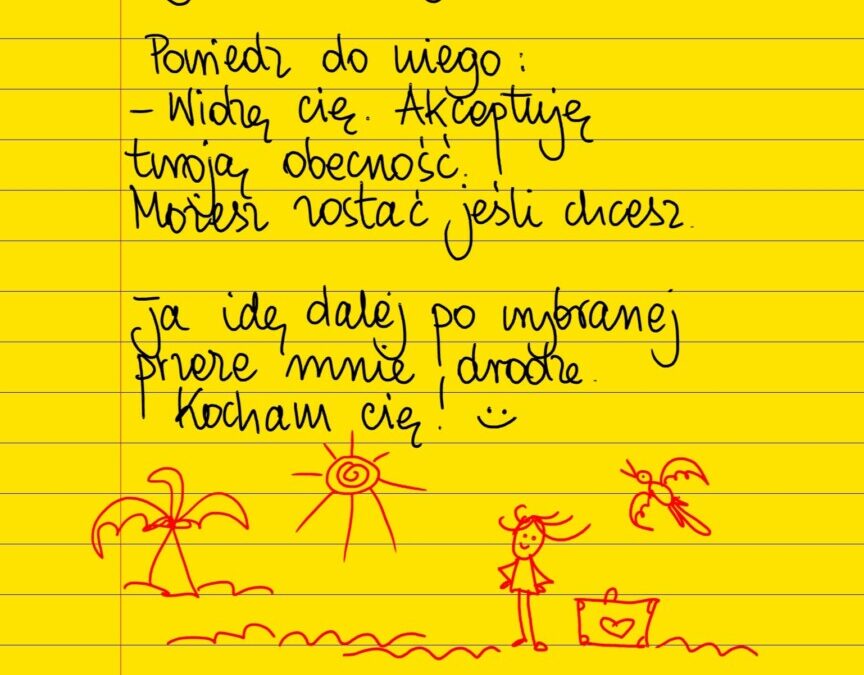 Powiedz do niego:
- Widzę cię. Akceptuję
twoją obecność.
Możesz zostać jeśli chcesz.
Ja idę dalej po wybranej
przeze mnie drodze.
Kocham cię! :)